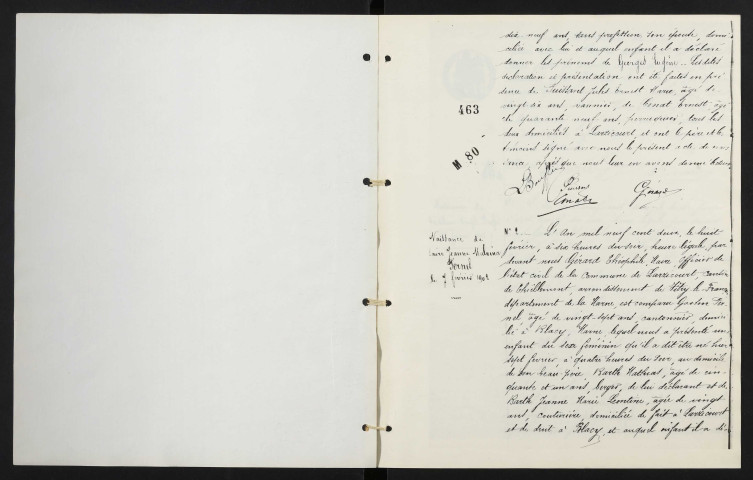 dix neuf ans, sans profession son épouse, domi
ciliée avec lui et auquel enfant il a déclaré
donner les prénoms de Georges Les dites
déclaration et présentation ont été faites en pré
sence de Jules Ernest Marie, âgé de
vingt six ans, vannier, de Ernest âgé
de quarante neuf ans, perruquier, tous les
deux domiciliés à Larzicourt, et ont le père et les
témoins signé avec nous le présent acte de nais
sance, après que nous leur en avons donné lecture
463
M 80
Gérard
Naissance de
Jeanne
le 7 février 1902
N° 2. L'An mil neuf cent deux, le huit
février, à six heures du soir, heure légale, par
devant nous Gérard Théophile, Maire, Officier de
l'état civil de la commune de Larzicourt, canton
de Thiéblemont, arrondissement de Vitry le François
département de la Marne, est comparu Gaston
âgé de vingt-sept ans, cantonnier, domici
lié à Blacy, Marne, lequel nous a présenté un
enfant du sexe féminin qu'il a dit être né hier
sept février, à quatre heures du soir, au domicile
de son beau-père, Barth Mathias, âgé de cin
quante et un ans, berger, de lui déclarant et de
Barth Jeanne Marie Léontine, âgée de vingt
ans, couturière, domiciliée de fait à Larzicourt
et de droit à Blacy, et auquel enfant il a dé